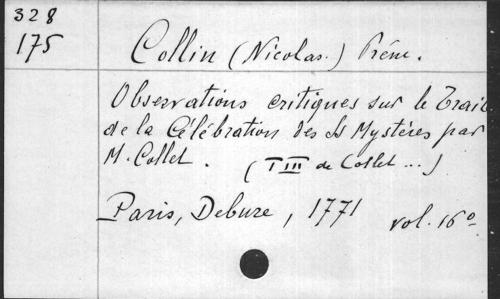 328
175
Collin (Nicolas.) Prém.
Observations critiques sur le Trait
de la Célébration des Sts Mystères par
M. Collet. (T III de Collet ...)
Paris, Debure, 1771 vol. 16o